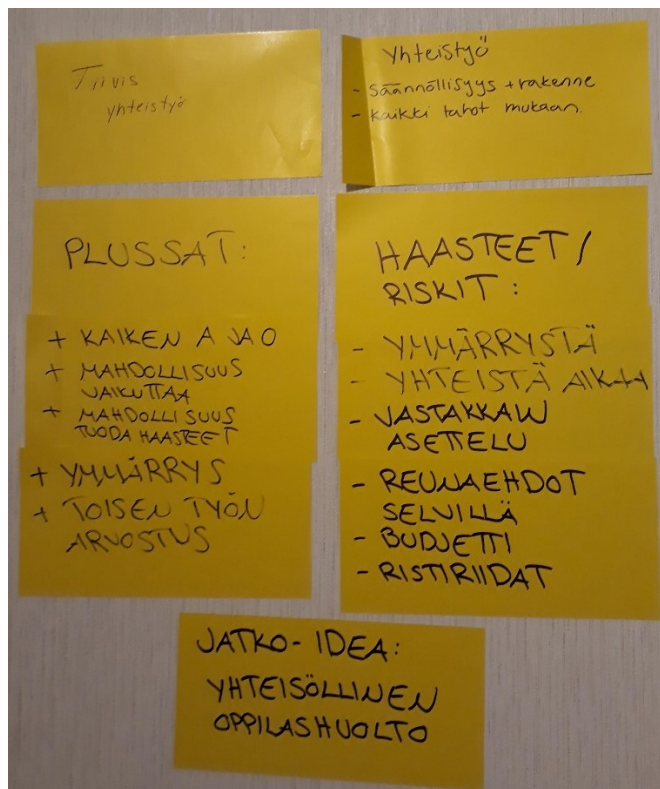 Tiivis
yhteistyö
Yhteistyö
- Säännöllisyys + rakenne
- Kaikki tahot mukaan.
PLUSSAT:
+ KAIKEN A JA O
+ MAHDOLLISUUS
VAIKUTTAA
+ MAHDOLLISUUS
TUODA HAASTEET
+ YMMÄRRYS
+ TOISEN TYÖN
ARVOSTUS
HAASTEET /
RISKIT :
- YMMÄRRYSTÄ
- YHTEISTÄ AIKAA
- VASTAKKAIN
ASETTELU
- REUNAEHDOT
SELVILLÄ
- BUDJETTI
- RISTIRIIDAT
JATKO-IDEA:
YHTEISÖLLINEN
OPPILASHUOLTO